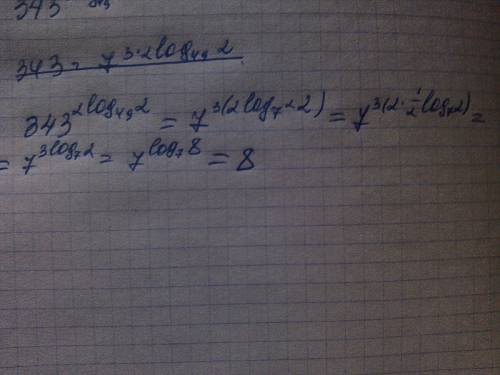 343
343 = 7^{3·2log_{49}2}
343^{2log_{49}2} = 7^{3(2log_{7^2}2)} = 7^{3(2·\frac{1}{2}log_7 2)} =
= 7^{3log_7 2} = 7^{log_7 8} = 8